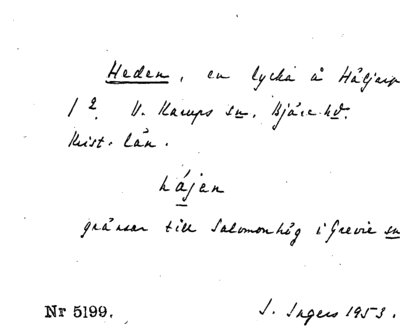 Heden, en lycka å Häljarp
1². V. Karups sn, Bjäre hd.
Krist. län.
hájen
gränsar till Salomonhög i Grevie sn
Nr 5199. I. Ingers 1953.